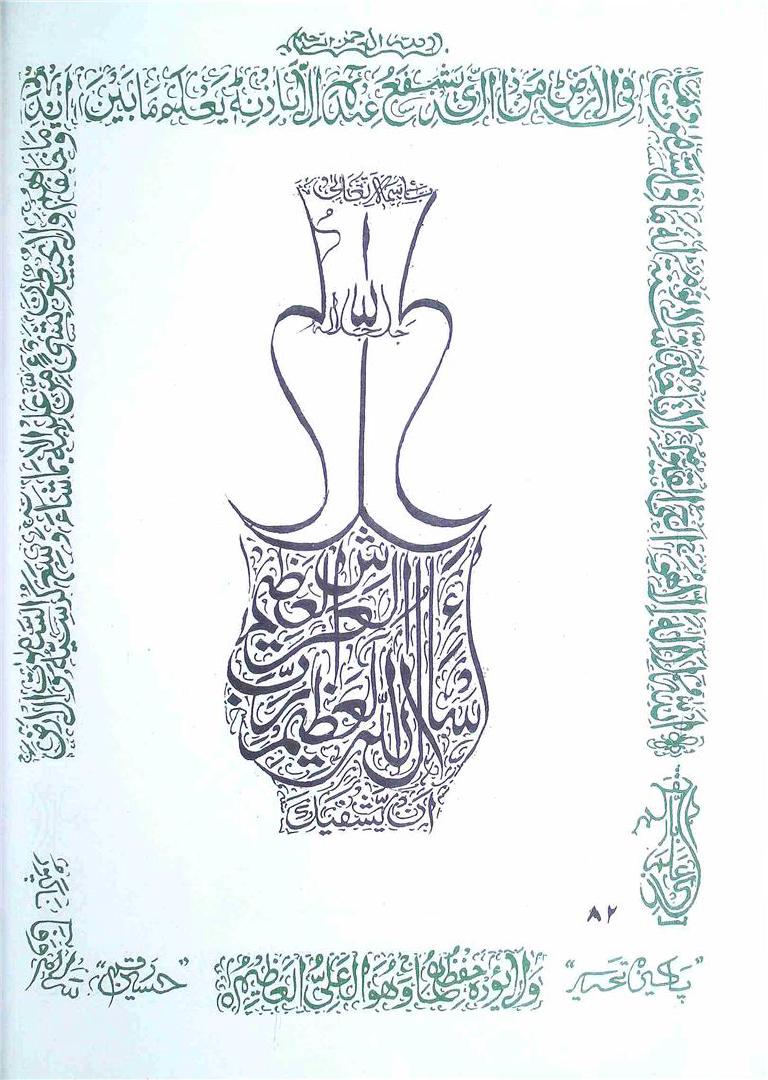 بسم الله الرحمن الرحيم
الله لا اله الا هو الحي القيوم لا تاخذه سنة ولا نوم له ما في السموت وما
في الارض من ذا الذي يشفع عنده الا باذنه يعلم ما بين ايديهم
وما خلفهم ولا يحيطون بشيء من علمه الا بما شاء وسع كرسيه السموت والارض
ولا يؤده حفظهما وهو العلي العظيم
باسمه تعالى
الله
جل جلاله
اسأل الله العظيم رب العرش العظيم
ان يشفيك
٨٢
"پاکیزہ تحریر"
"حسین رقم"